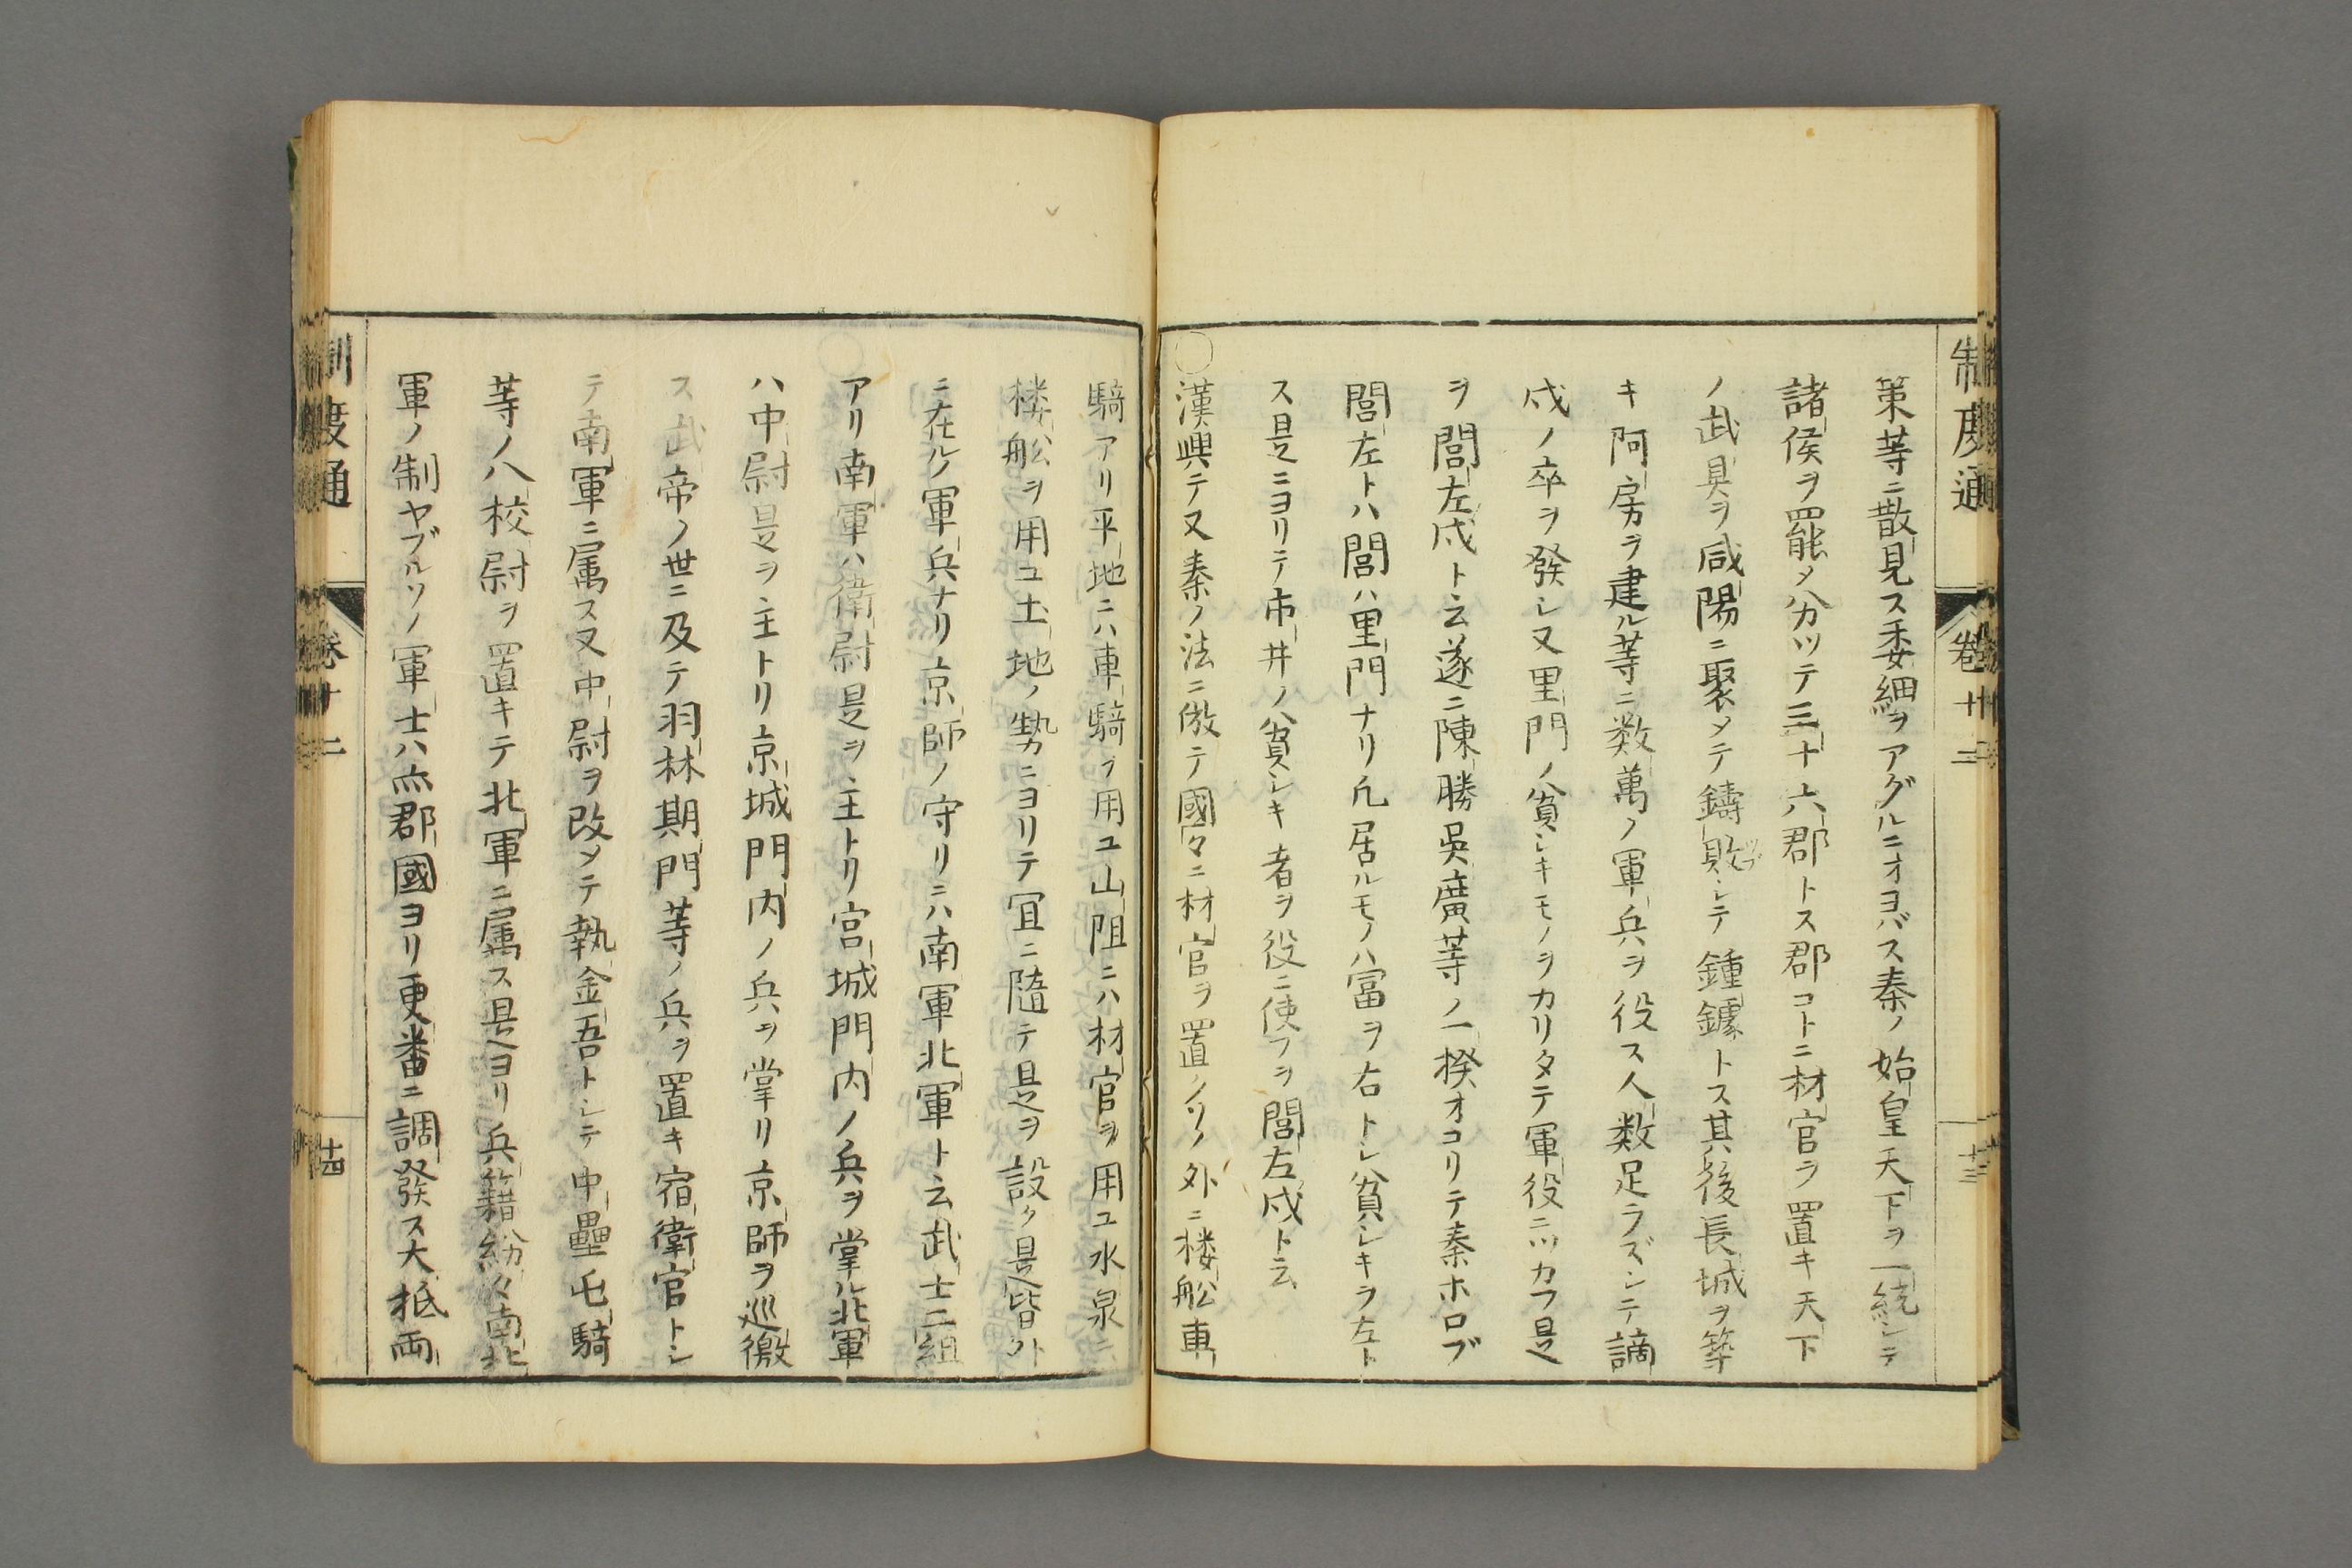 制度通
卷十二
十三
策等ニ散見ス委細ヲアグルニオヨバス秦ノ始皇天下ヲ一統シテ
諸侯ヲ罷メ分カツテ三十六郡トス郡コトニ材官ヲ置キ天下
ノ武具ヲ咸陽ニ聚メテ鑄敗シテ鍾鐻トス其後長城ヲ築
キ阿房ヲ建ル等ニ数萬ノ軍兵ヲ役ス人数足ラズシテ謫
戍ノ卒ヲ發シ又里門ノ貧シキモノヲカリタテ軍役ニツカフ是
ヲ閭左戍ト云遂ニ陳勝吳廣等ノ一揆オコリテ秦ホロブ
閭左トハ閭ハ里門ナリ凡居ルモノハ富ヲ右トシ貧シキヲ左ト
ス是ニヨリテ市井ノ貧シキ者ヲ役ニ使フヲ閭左戍ト云
○漢興テ又秦ノ法ニ倣テ國々ニ材官ヲ置ソノ外ニ楼舩車
騎アリ平地ニハ車騎ヲ用ユ山阻ニハ材官ヲ用ユ水泉ニ
楼舩ヲ用ユ土地ノ勢ニヨリテ冝ニ隨テ是ヲ設ク是皆外
ニ在ルノ軍兵ナリ京師ノ守リニハ南軍北軍ト云武士二組
アリ南軍ハ衛尉是ヲ主トリ宮城門内ノ兵ヲ掌ル北軍
ハ中尉是ヲ主トリ京城門内ノ兵ヲ掌リ京師ヲ巡徼
ス武帝ノ世ニ及テ羽林期門等ノ兵ヲ置キ宿衛官トシ
テ南軍ニ属ス又中尉ヲ改メテ執金吾トシテ中壘屯騎
等ノ八校尉ヲ置キテ北軍ニ属ス是ヨリ兵籍紛々南北
軍ノ制ヤブルソノ軍士ハ亦郡國ヨリ更番ニ調發ス大抵両
制度通
卷十二
十四